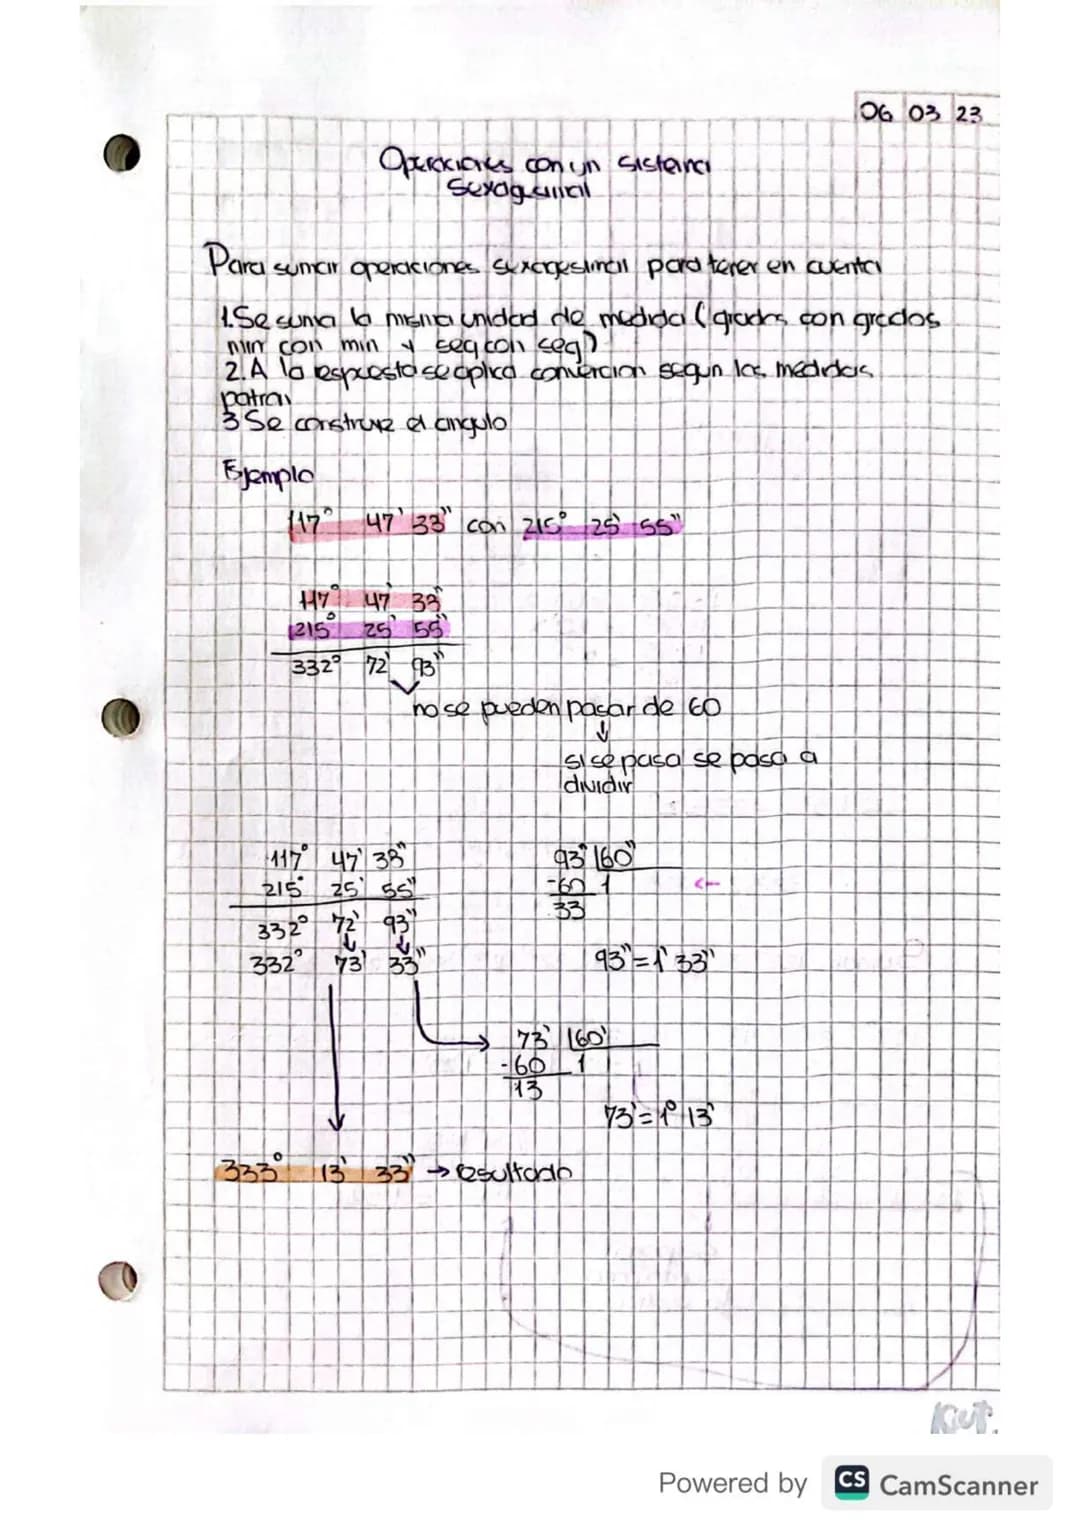 06 03 23
Operaciones con un sistema
sexagesimal
Para sumar operaciones sexagesimal para tener en cuenta
1. Se suma la misma unidad de medida (grados con grados
min con min y seg con seg)
2. A la respuesta se aplica convercion segun las medidas
patron
3 Se construye el angulo
Ejemplo
117° 47' 33" con 215° 25' 55"
117° 47' 33"
215° 25' 55"
332° 72' 93"
no se pueden pasar de 60
↓
si se pasa se pasa a
dividir
117° 47' 38" 93" 60"
215° 25' 55" -60 1 ←
332° 72' 93" 33
332° 73' 33" 93" = 1' 33"
73' 60'
-60 1
13
73' = 1° 13'
333° 13' 33" → resultado
Kiut.
Powered by CS CamScanner